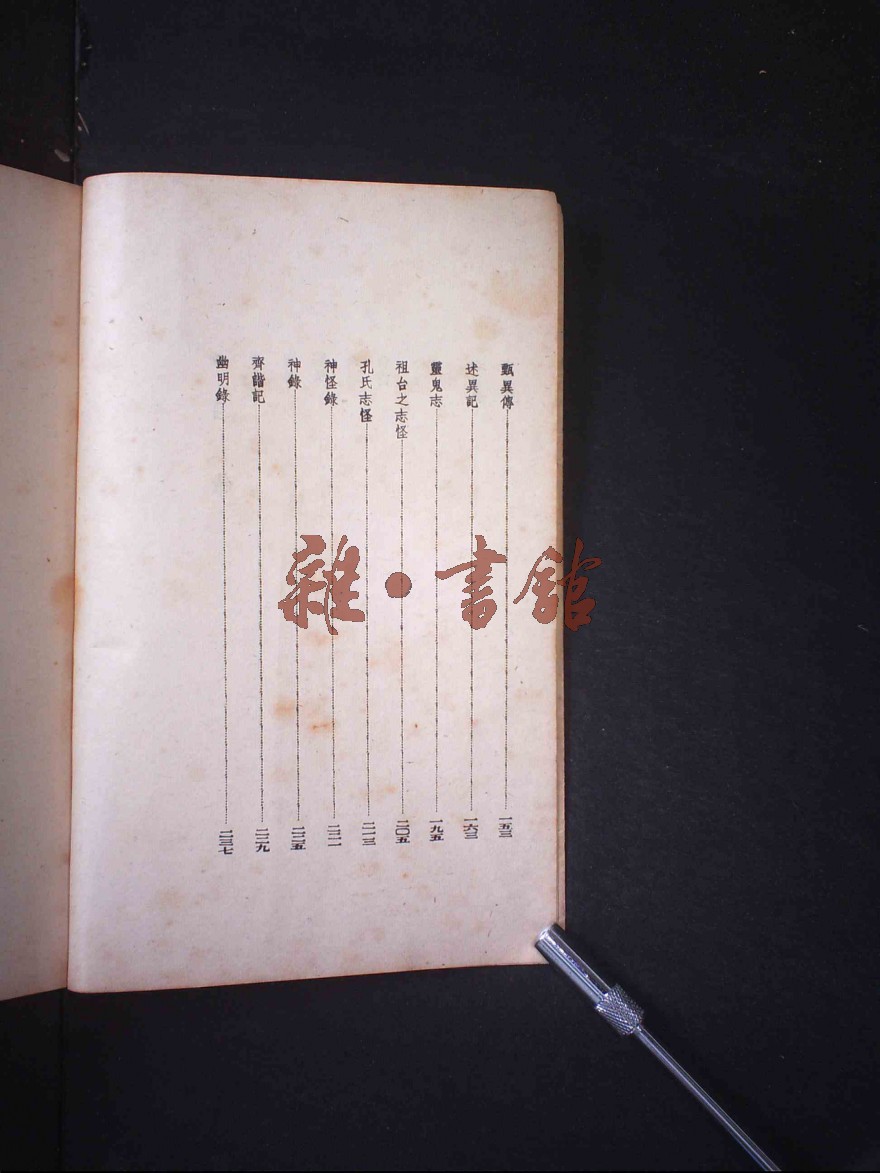 甄異傳……一五三
述異記……一六三
靈鬼志……一九五
祖台之志怪……二〇五
孔氏志怪……二一三
神怪錄……二二一
神錄……二二五
齊諧記……二二九
幽明錄……二三七
雜·書館